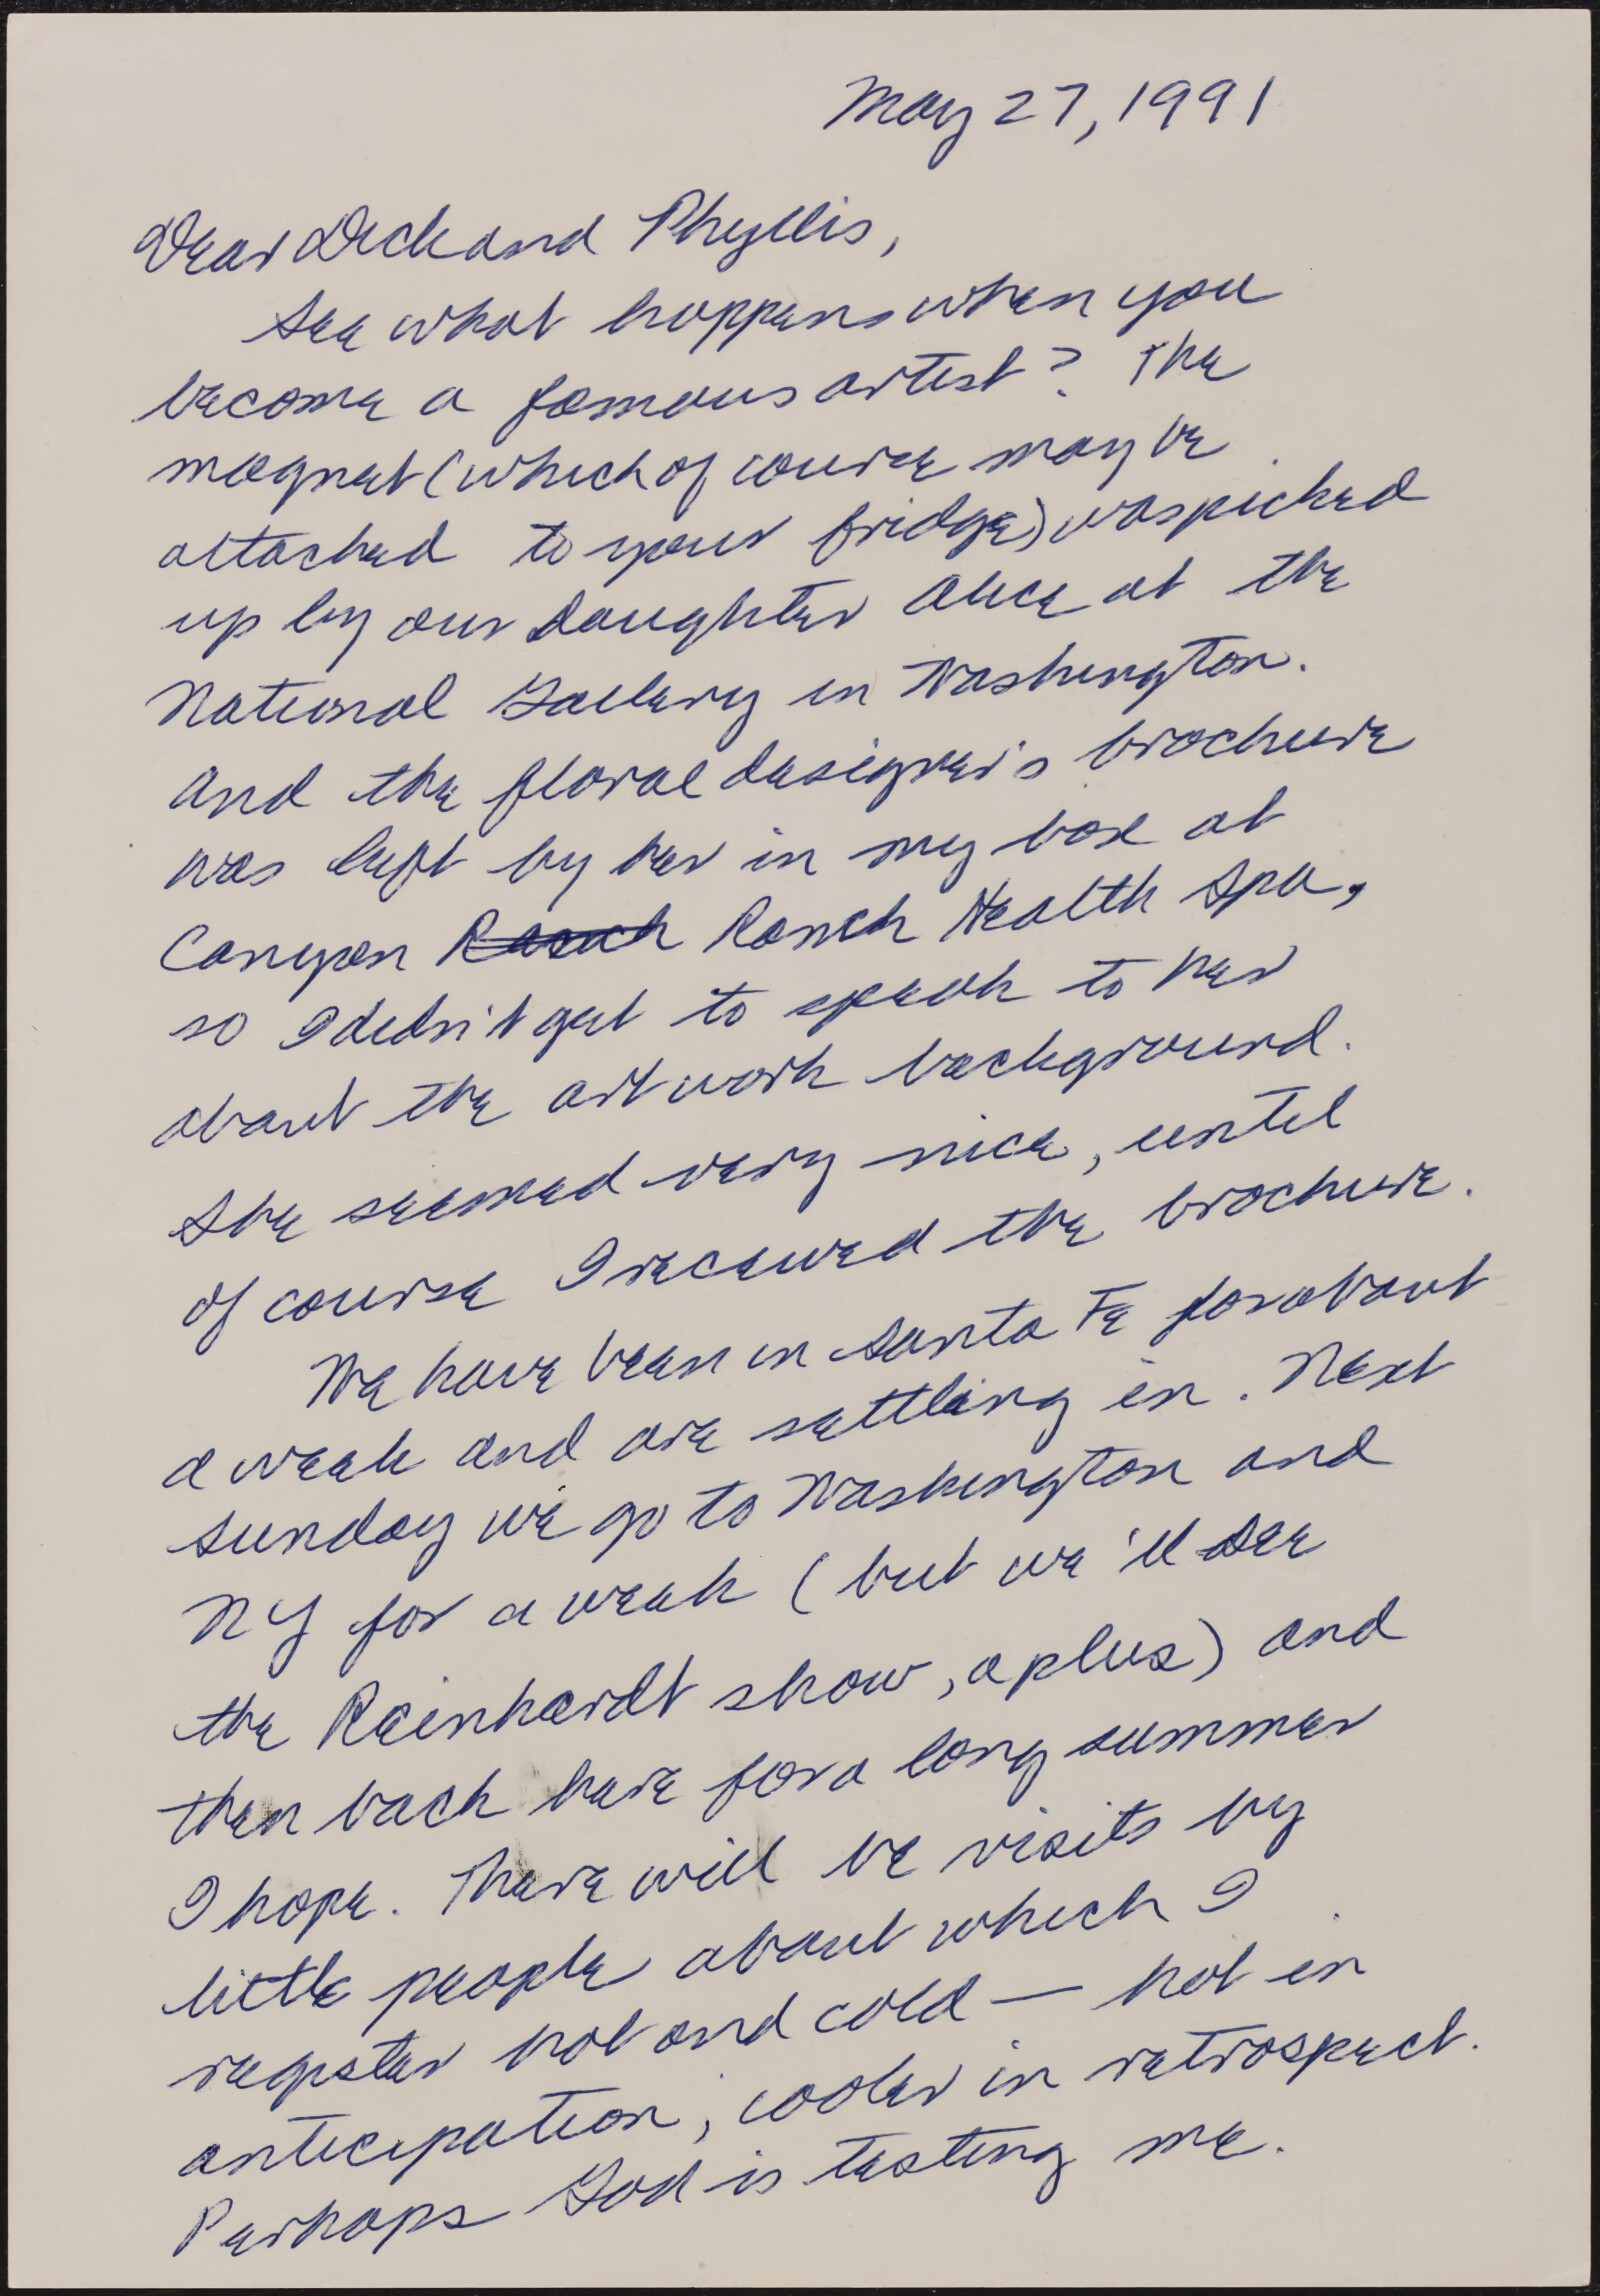 May 27, 1991
Dear Dick and Phyllis,
See what happens when you
become a famous artist? The
magnet (which of course may be
attached to your fridge) was picked
up by our daughter Alice at the
National Gallery in Washington.
And the floral designer's brochure
was left by her in my box at
Canyon Ranch Ranch Health Spa,
so I didn't get to speak to her
about the art work background.
She seemed very nice, until
of course I received the brochure.
We have been in Santa Fe for about
a week and are settling in. Next
Sunday we go to Washington and
NY for a week (but we'll see
the Reinhardt show, a plus) and
then back here for a long summer
I hope. There will be visits by
little people about which I
register hot and cold — hot in
anticipation, cooler in retrospect.
Perhaps God is testing me.